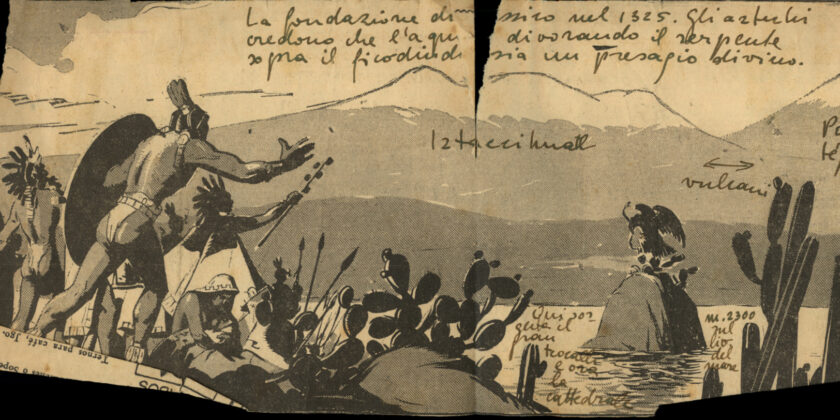 La fondazione di ssico nel 1325. Gli aztechi
credono che l'aqu divorando il serpente
sopra il ficodindi sia un presagio divino.
Iztaccihuatl
vulcani
Qui sor
geva il
gran
teocalli
e ora
la
cattedrale
m. 2300
sul
liv.
del
mare
Ternos para café, Jgo.